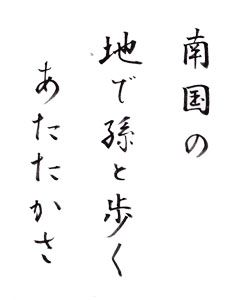 南国の
地で孫と歩く
あたたかさ